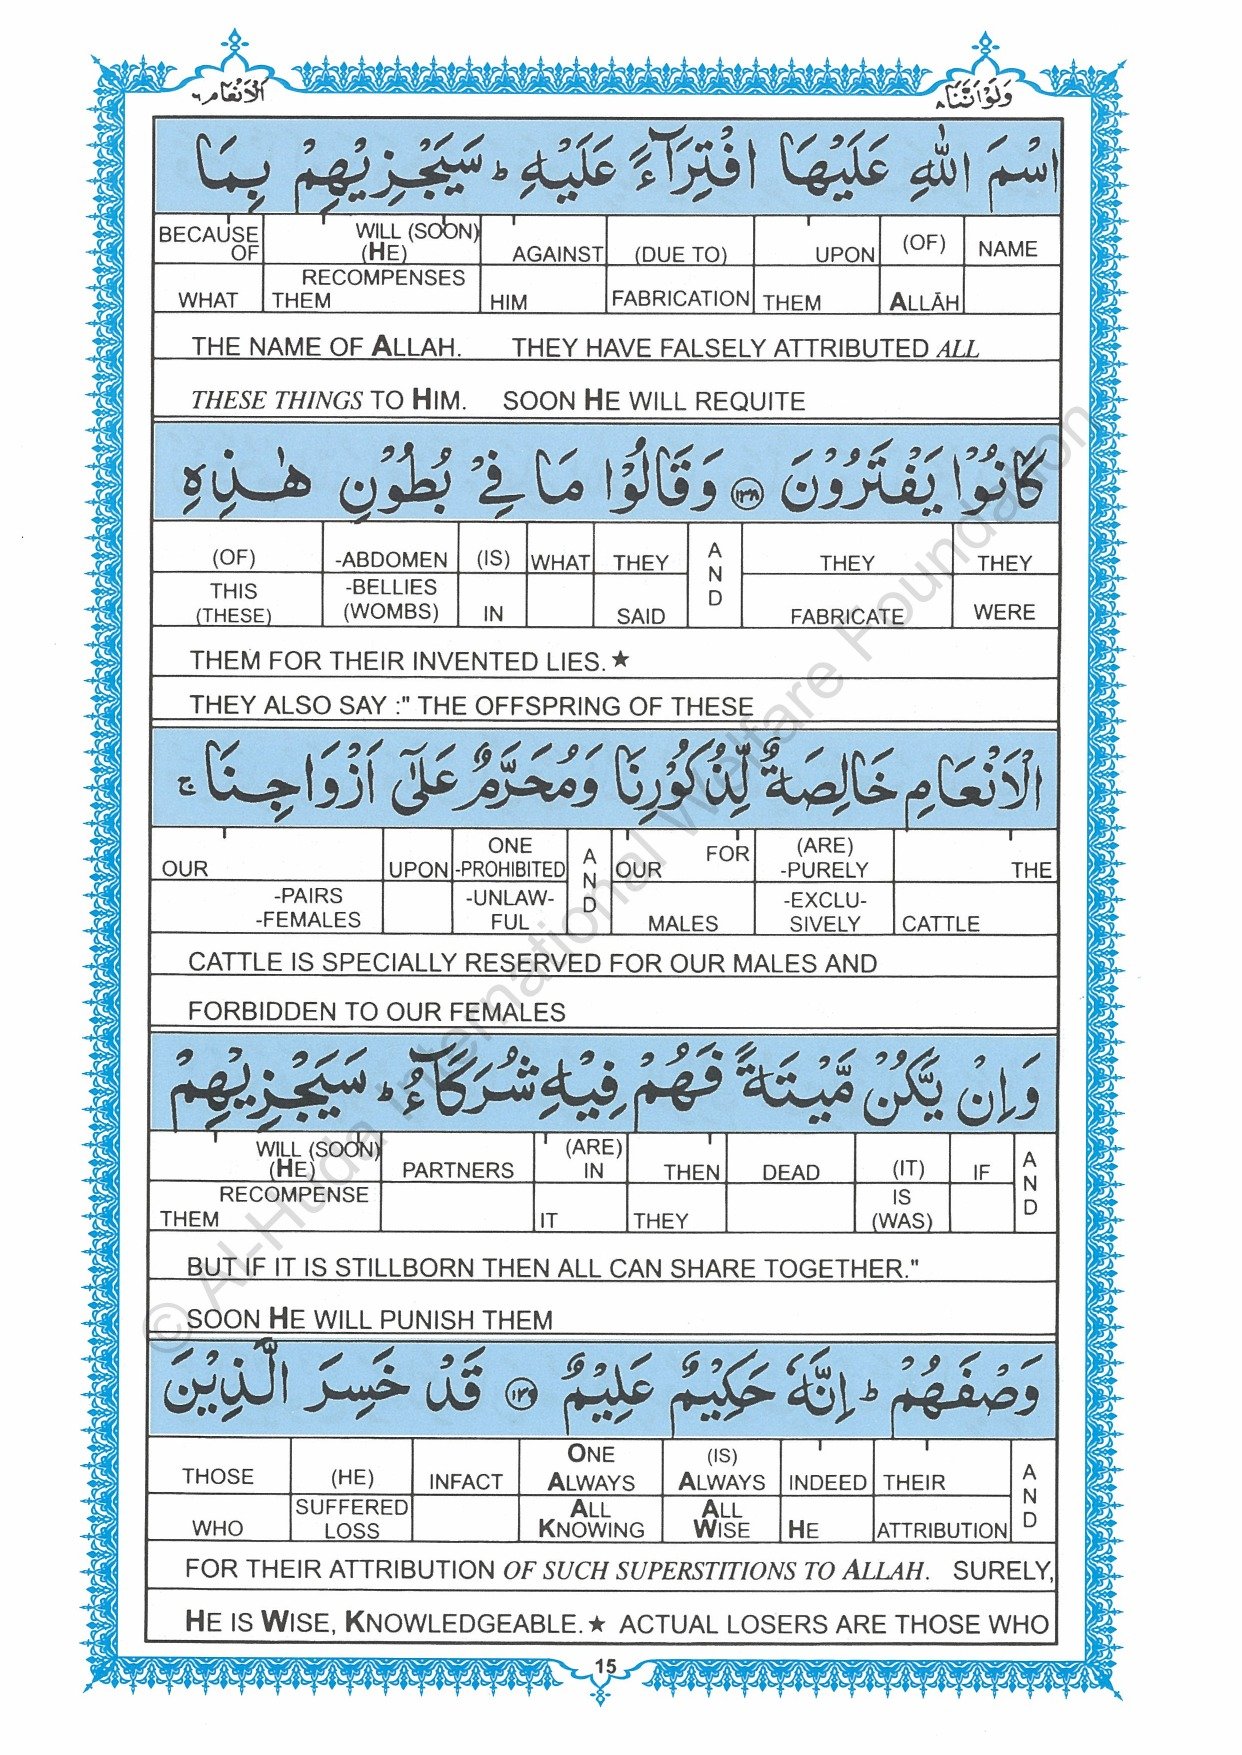 الانعام ٦
ولواننا ٨
اسْمَ اللّٰهِ عَلَيْهَا افْتِرَآءً عَلَيْهِ ؕ سَيَجْزِيْهِمْ بِمَا
BECAUSE OF WILL (SOON) (HE) AGAINST (DUE TO) UPON (OF) NAME
WHAT RECOMPENSES THEM HIM FABRICATION THEM ALLĀH
THE NAME OF ALLAH. THEY HAVE FALSELY ATTRIBUTED ALL
THESE THINGS TO HIM. SOON HE WILL REQUITE
كَانُوْا يَفْتَرُوْنَ ١٣٨ وَقَالُوْا مَا فِيْ بُطُوْنِ هٰذِهِ
(OF) -ABDOMEN (IS) WHAT THEY AND THEY THEY
THIS (THESE) -BELLIES (WOMBS) IN SAID FABRICATE WERE
THEM FOR THEIR INVENTED LIES.★
THEY ALSO SAY :" THE OFFSPRING OF THESE
الْاَنْعَامِ خَالِصَةٌ لِّذُكُوْرِنَا وَمُحَرَّمٌ عَلٰٓى اَزْوَاجِنَا ج
OUR UPON ONE -PROHIBITED AND OUR FOR (ARE) -PURELY THE
-PAIRS -FEMALES -UNLAW-FUL MALES -EXCLU-SIVELY CATTLE
CATTLE IS SPECIALLY RESERVED FOR OUR MALES AND
FORBIDDEN TO OUR FEMALES
وَاِنْ يَّكُنْ مَّيْتَةً فَهُمْ فِيْهِ شُرَكَآءُ ؕ سَيَجْزِيْهِمْ
WILL (SOON) (HE) PARTNERS (ARE) IN THEN DEAD (IT) IF AND
RECOMPENSE THEM IT THEY IS (WAS)
BUT IF IT IS STILLBORN THEN ALL CAN SHARE TOGETHER."
SOON HE WILL PUNISH THEM
وَصْفَهُمْ ؕ اِنَّهٗ حَكِيْمٌ عَلِيْمٌ ١٣٩ قَدْ خَسِرَ الَّذِيْنَ
THOSE (HE) INFACT ONE ALWAYS (IS) ALWAYS INDEED THEIR AND
WHO SUFFERED LOSS ALL KNOWING ALL WISE HE ATTRIBUTION
FOR THEIR ATTRIBUTION OF SUCH SUPERSTITIONS TO ALLAH. SURELY,
HE IS WISE, KNOWLEDGEABLE.★ ACTUAL LOSERS ARE THOSE WHO
15
© Al-Huda International Welfare Foundation